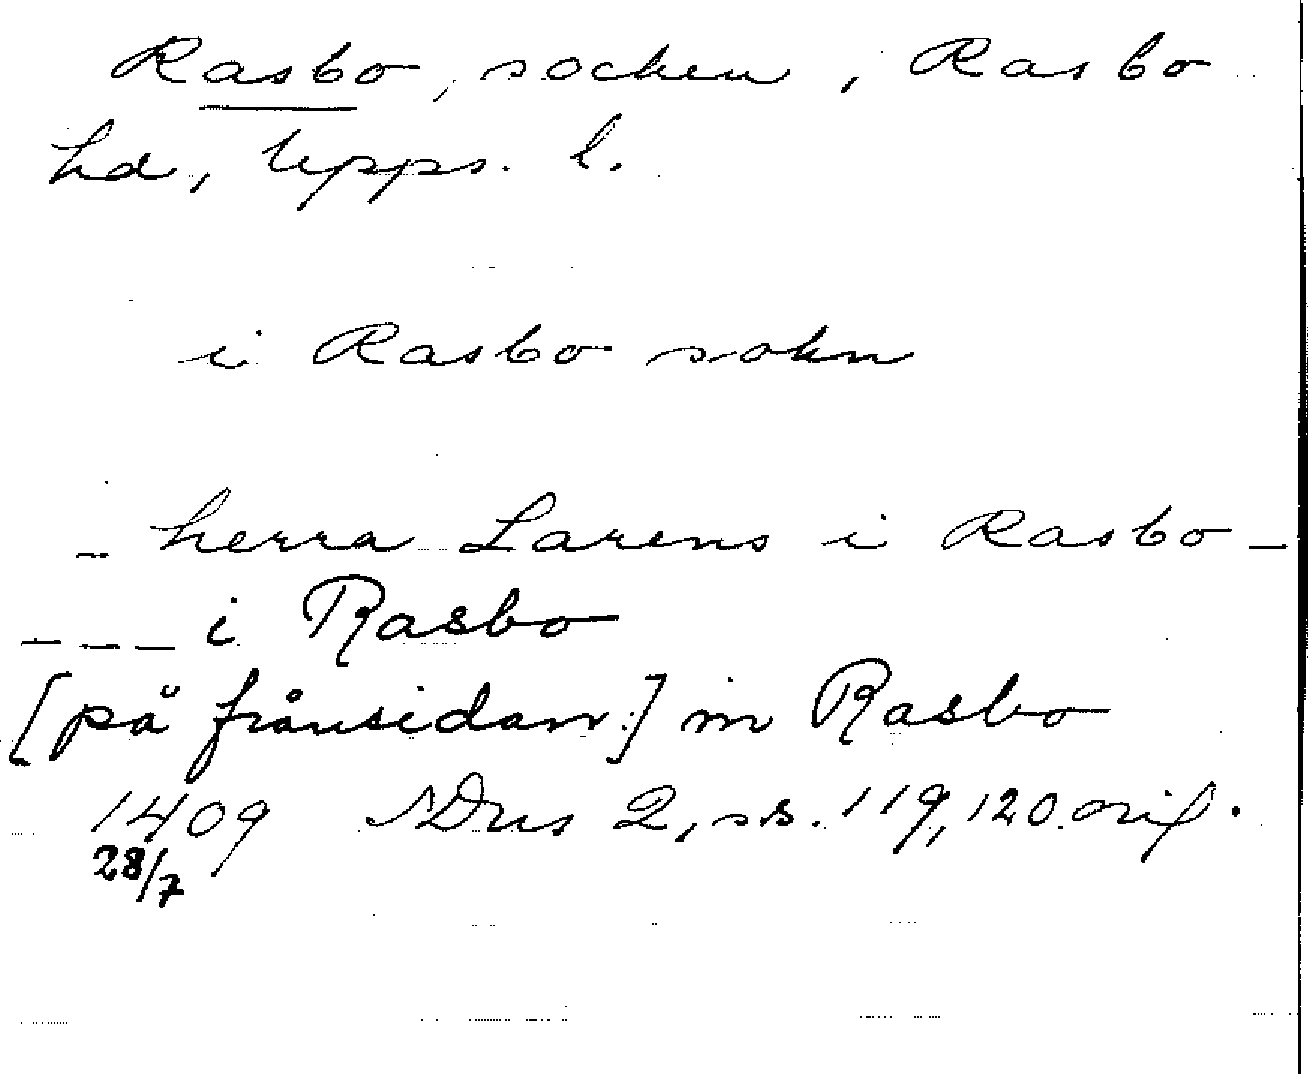 Rasbo, socken, Rasbo
hd, Upps. l.
i Rasbo sokn
_ herra Larens i Rasbo _
_ _ _ i Rasbo
[på frånsidan:] in Rasbo
1409 SDns 2, ss. 119, 120. orig.
28/7